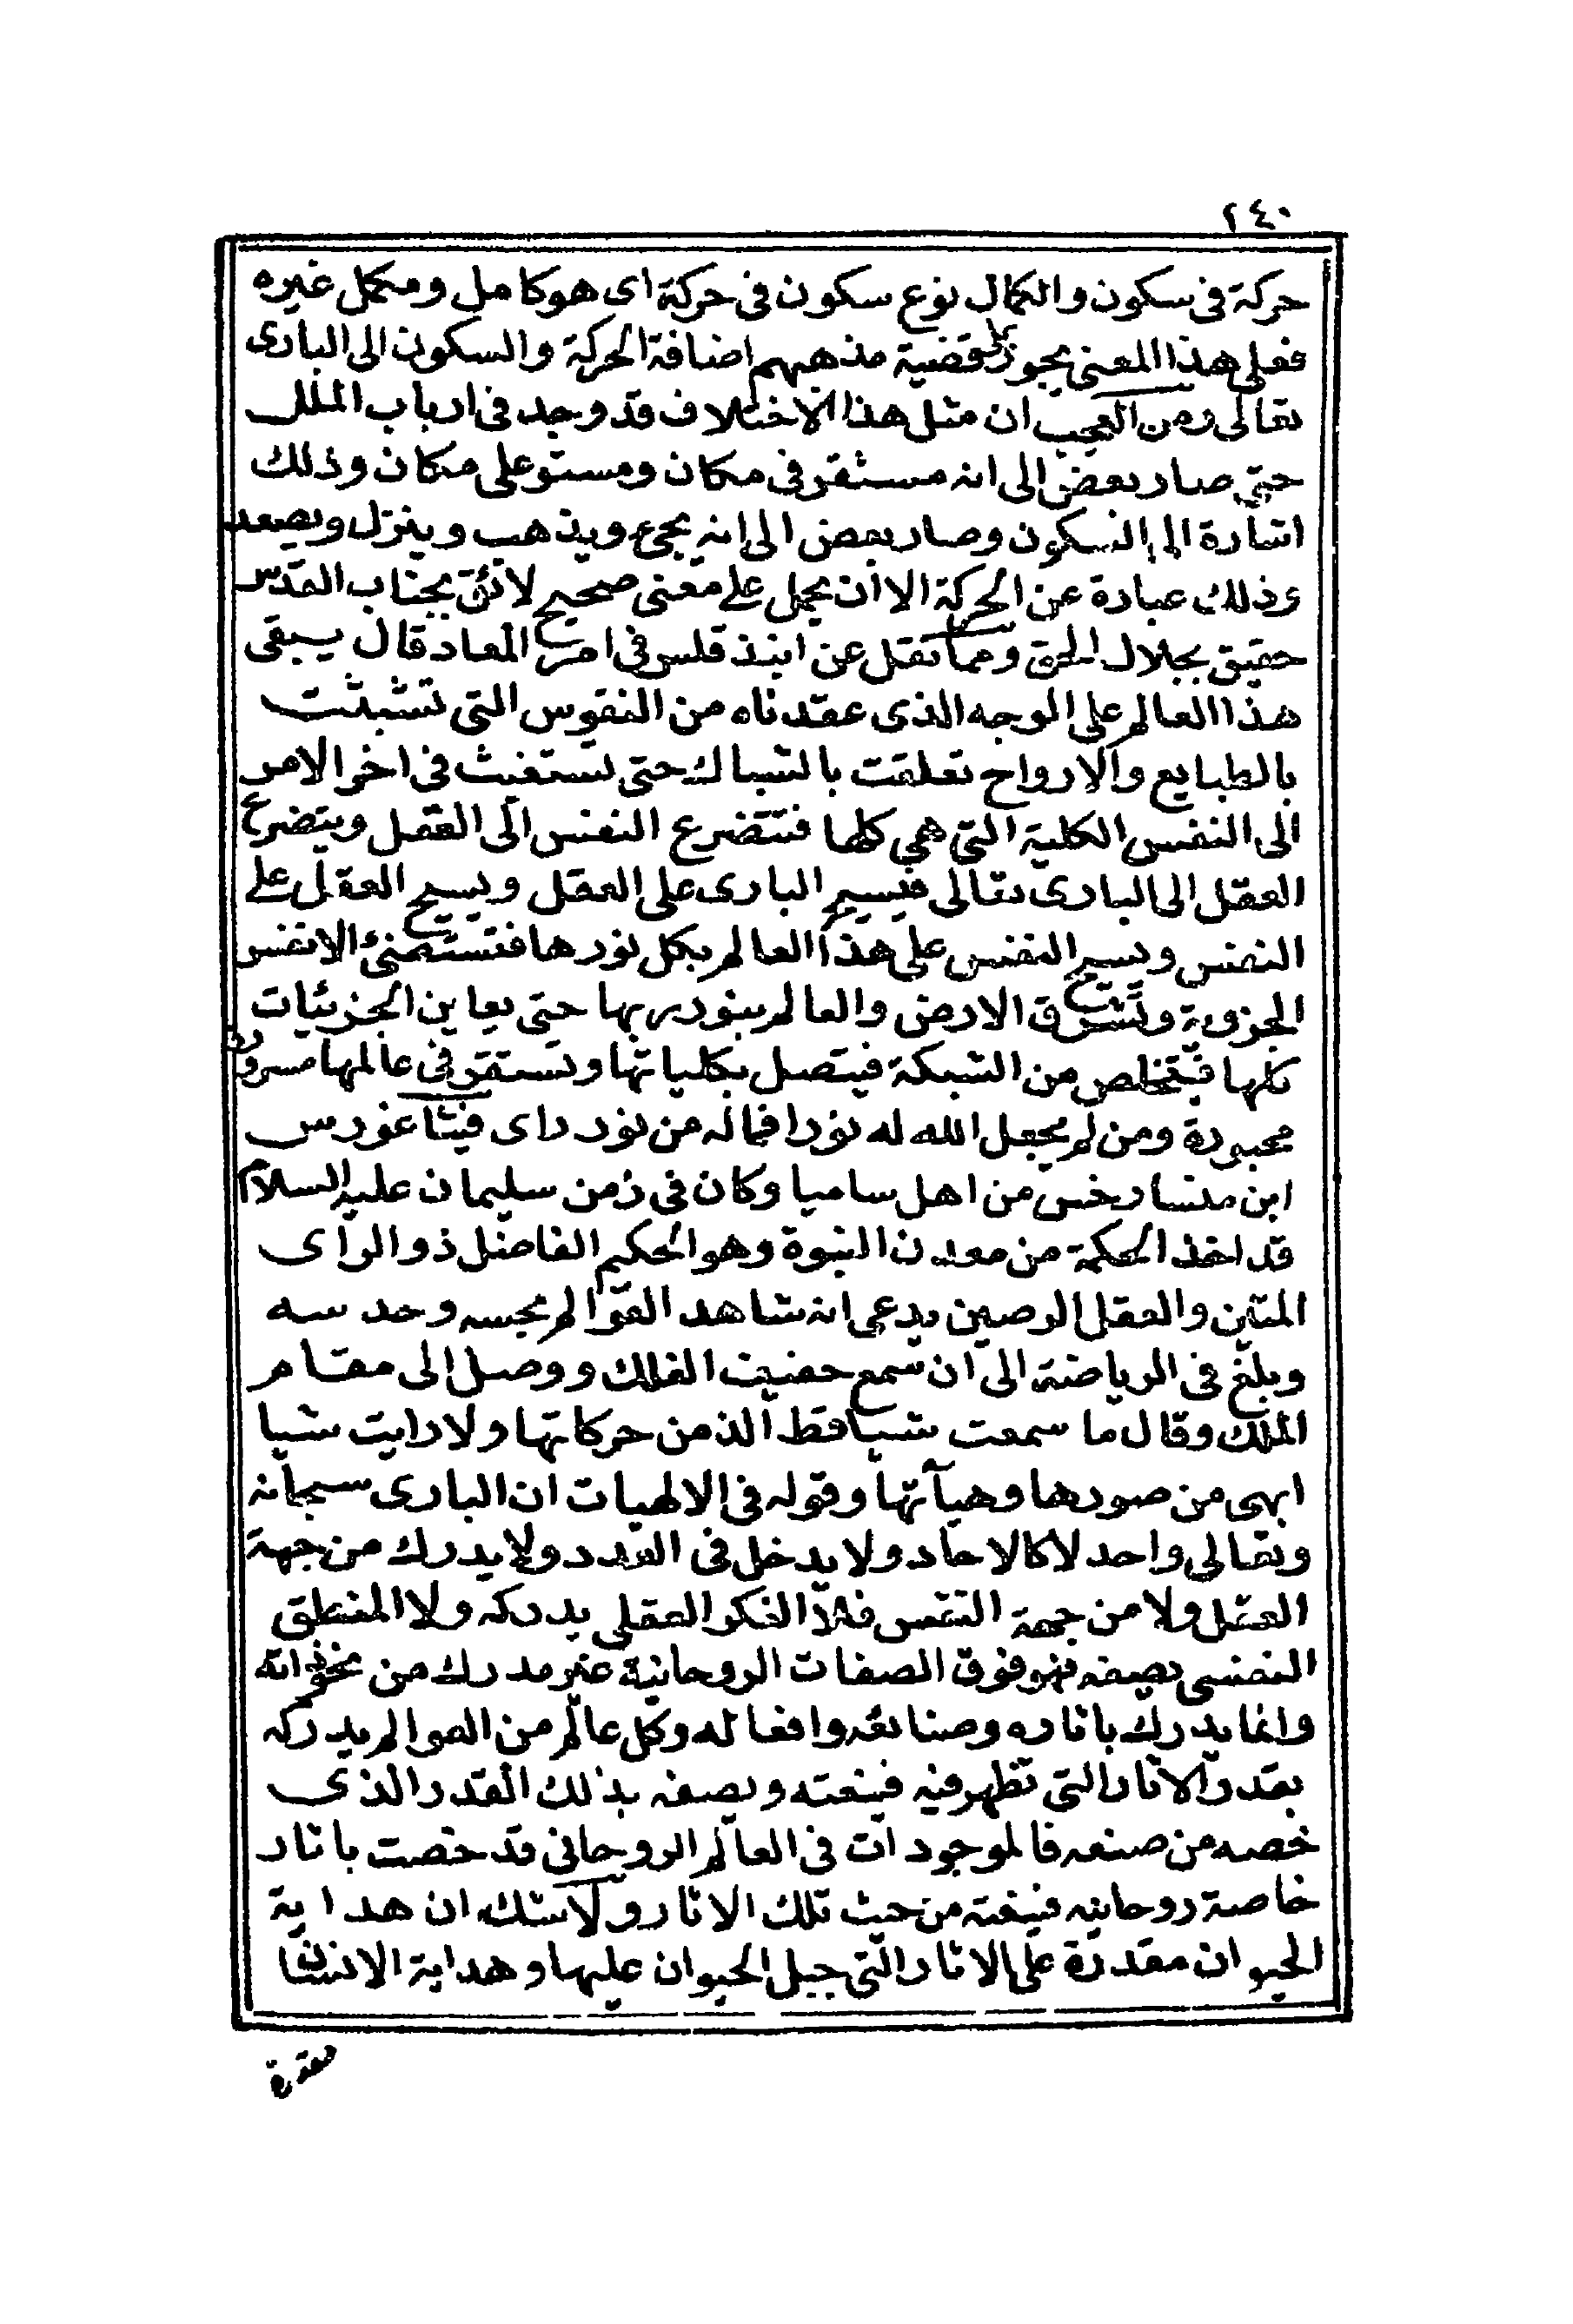 ٢٤٠
حركة فى سكون والكمال نوع سكون فى حركة اى هو كامل ومكمل غيره
فعلى هذا المعنى يجوز على قضية مذهبهم اضافة الحركة والسكون الى البارى
تعالى ومن العجب ان مثل هذا الاختلاف قد وجد فى ارباب الملل
حتى صار بعض الى انه مستقر فى مكان ومستو على مكان وذلك
اشارة الى السكون وصار بعض الى انه يجىء ويذهب وينزل ويصعد
وذلك عبارة عن الحركة الا ان يحمل على معنى صحيح لائق بجناب القدس
حقيق بجلال الحق ومما نقل عن ابنذ قلس فى امر المعاد قال يبقى
هذا العالم على الوجه الذى عقدناه من النفوس التى تشبثت
بالطبايع والارواح تعلقت بالشباك حتى تستغيث فى اخر الامر
الى النفس الكلية التى هى كلها فتتضرع النفس الى العقل ويتضرع
العقل الى البارى تعالى فيسيح البارى على العقل ويسيح العقل على
النفس ويسيح النفس على هذا العالم بكل نورها فتستضئ الانفس
الجزوية وتشرق الارض والعالم بنور ربها حتى يعاين الجزئيات
كلها فيتخلص من الشبكة فيتصل بكلياتها وتستقر فى عالمها مسرورة
محبورة ومن لم يجعل الله له نورا فماله من نور راى فيثاغورس
ابن منسارخس من اهل ساميا وكان فى زمن سليمان عليه السلام
قد اخذ الحكمة من معدن النبوة وهو الحكيم الفاضل ذو الراى
المتين والعقل الرصين يدعى انه شاهد العوالم بحسه وحدسه
وبلغ فى الرياضة الى ان سمع حفيف الفلك ووصل الى مقام
الملك وقال ما سمعت شيا قط الذ من حركاتها ولا رايت شيا
ابهى من صورها وهيآتها وقوله فى الالهيات ان البارى سبحانه
وتعالى واحد لا كالاحاد ولا يدخل فى العدد ولا يدرك من جهة
العقل ولا من جهة النفس فلا الفكر العقلى يدركه ولا المنطق
النفسى يصفه فهو فوق الصفات الروحانية غير مدرك من نحو ذاته
وانما يدرك باثاره وصنائعه وافعاله وكل عالم من العوالم يدركه
بقدر الاثار التى تظهر فيه فينعته ويصفه بذلك القدر الذى
خصه من صنعه فالموجودات فى العالم الروحانى قد خصت باثار
خاصة روحانيه فينعته من حيث تلك الاثار ولا شك ان هداية
الحيوان مقدرة على الاثار التى جبل الحيوان عليها وهداية الانسان
مقدرة